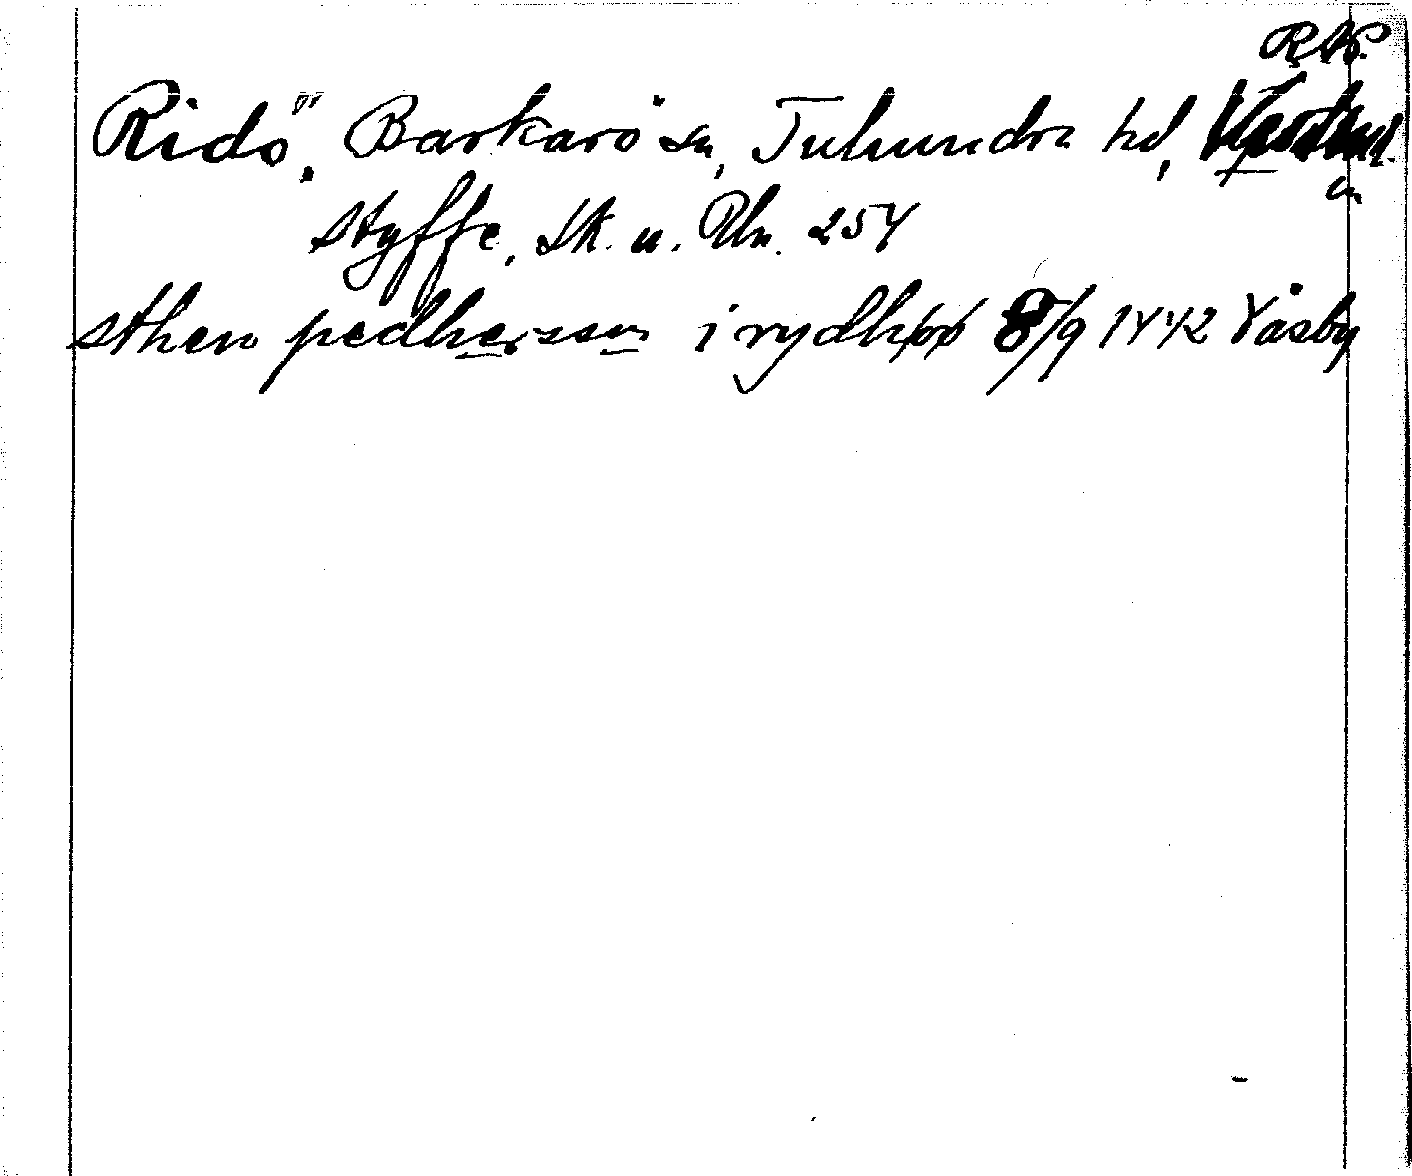 RAP.
Ridö, Barkarö sn, Tuhundra hd,
Styffe, Sk. u. Un. 254
sthen pedhersson i rydhøø 8/9 1442 Våsby